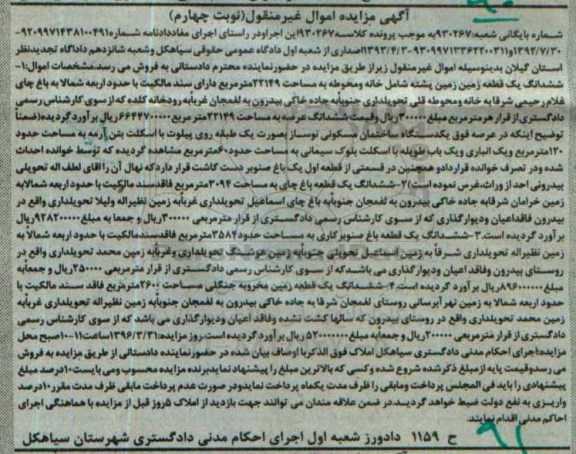 آگهی مزایده اموال غیرمنقول(نوبت چهارم)
شماره بایگانی شعبه:۹۳۰۲۶۷به موجب پرونده کلاسه۹۳۰۲۶۷این اجرا ودر راستای اجرای مفاددادنامه شماره۹۲۰۹۹۷۱۴۳۸۱۰۰۴۹۱-
۱۳۹۲/۷/۳۰و۹۳۰۹۹۷۱۳۳۶۲۲۰۰۳۱۱-۱۳۹۳/۴/۳صداری از شعبه اول دادگاه عمومی حقوقی سیاهکل وشعبه شانزدهم دادگاه تجدیدنظر
استان گیلان بدینوسیله اموال غیرمنقول زیراز طریق مزایده در حضورنماینده محترم دادستانی به فروش می رسد.مشخصات اموال:۱-
ششدانگ یک قطعه زمین زمین پشته شامل خانه ومحوطه به مساحت ۲۲۱۴۹مترمربع دارای سند مالکیت با حدود اربعه شمالا به باغ چای
غلام رحیمی شرقا به خانه ومحوطه قلی تحویلداری جنوبابه جاده خاکی بیدرون به لفمجان غربابه رودخانه کلده که ازسوی کارشناس رسمی
دادگستری از قرار هرمترمربع مبلغ۳۰۰۰۰ریال وقیمت ششدانگ عرصه به مساحت ۲۲۱۴۹مترمربع ۶۶۴۴۷۰۰۰۰ریال برآورد گردیده(ضمناً
توضیح اینکه در عرصه فوق یکدستگاه ساختمان مسکونی نوساز بصورت یک طبقه روی پیلوت با اسکلت بتن آرمه به مساحت حدود
۱۲۰مترمربع ویک انباری ویک باب طویله با اسکلت بلوک سیمانی به مساحت حدود۶۰مترمربع مشاهده گردید که توسط خوانده احداث
شده ودر تصرف خوانده قرارداد و همچنین در قسمتی از قطعه اول یک باغ صنوبر دست کاشت قرار داردکه نهال آن را آقای لطف اله تحویلی
بیدرونی احد از وراث،غرس نموده است)۲-ششدانگ یک قطعه باغ چای به مساحت ۳۰۹۴مترمربع فاقدسند مالکیت با حدود اربعه شمالابه
زمین خرامان شرقابه جاده خاکی بیدرون به لفمجان جنوبابه باغ چای اسماعیل تحویلداری غربابه زمین نظیراله ولیلا تحویلداری واقع در
بیدرون فاقداعیان ودیوارگذاری که از سوی کارشناس رسمی دادگستری از قرار مترمربعی ۳۰۰۰۰ریال و جمعا به مبلغ ۹۲۸۲۰۰۰۰ریال
برآورد گردیده است.۳-ششدانگ یک قطعه باغ صنوبرکاری به مساحت حدود۳۵۸۴مترمربع فاقدسند مالکیت با حدود اربعه شمالا به
زمین نظیراله تحویلداری شرقا به زمین اسماعیل تحویلی جنوبابه زمین هوشنگ تحویلداری وغربابه زمین محمد تحویلداری واقع در
روستای بیدرون وفاقد اعیان ودیوارگذاری می باشدکه از سوی کارشناس رسمی دادگستری از قرار مترمربعی ۲۵۰۰۰ریال و جمعابه
مبلغ۸۹۶۰۰۰۰۰ریال برآورد گردیده است.۴-ششدانگ یک قطعه زمین مخروبه جنگلی مساحت ۲۶۰۰مترمربع فاقد سند مالکیت با
حدود اربعه شمالا به زمین نهر آبرسانی روستای لفمجان شرقا به جاده خاکی بیدرون به لفمجان جنوبابه زمین نظیراله تحویلداری غربابه
زمین محمد تحویلداری واقع در روستای بیدرون که سالها کشت نشده وفاقد اعیان ودیوارگذاری می باشد که از سوی کارشناس رسمی
دادگستری از قرار مترمربعی ۲۰۰۰۰ریال و جمعابه مبلغ ۵۲۰۰۰۰۰۰ریال برآورد گردیده است.روز مزایده:۱۳۹۶/۳/۳۱ساعت۱۱-۱۰صبح محل
مزایده:اجرای احکام مدنی دادگستری سیاهکل املاک فوق الذکر با اوصاف بیان شده در حضورنماینده دادستانی از طریق مزایده به فروش
می رسدوقیمت پایه از مبلغ ذکرشده شروع شده وکسی که بالاترین مبلغ را پیشنهاد نمایدبرنده مزایده محسوب ومی بایست۱۰درصد مبلغ
پیشنهادی را باید فی المجلس پرداخت ومابقی را ظرف مدت یکماه پرداخت نمایدودر صورت عدم پرداخت مابقی ظرف مدت مقرر۱۰درصد
واریزی به نفع دولت ضبط خواهد گردید.در ضمن علاقه مندان می توانند جهت بازدید از املاک ۵روز قبل از مزایده با هماهنگی اجرای
احکام مدنی اقدام نمایند.
ح ۱۱۵۹ دادورز شعبه اول اجرای احکام مدنی دادگستری شهرستان سیاهکل